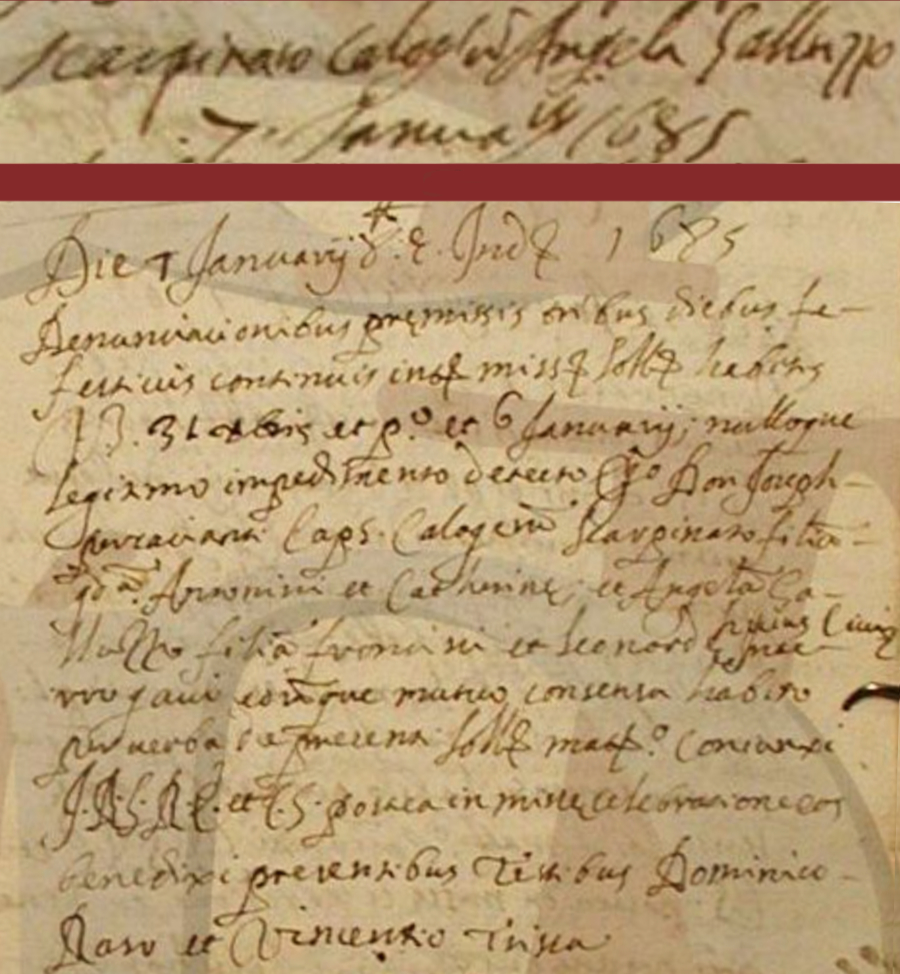 Scarpinato Calogerū Angela Galluzzo
7. Januarij 1685
Die 7 Januarij 8.e Ind. 1685
Denunciationibus premissis tribus diebus fe-
festivis continuis int. miss. soll. habitis
31 Xbris et p.º et 6 Januarij; nulloque
legitimo impedimento detecto Ego Don Joseph
Caps. Calogerū Scarpinato filiū
qdā. Antonini et Catherine; et Angelā Ga-
lluzzo filiā Francisci et Leonard huius Civi
rrogavi eorūque mutuo consensu habito
per verba de presenti soll. mat.º Coniunxi
J. R. S. R. E. et C. S. postea in misse celebratione eos
benedixi presentibus Testibus Dominico
Raso et Vincentio Trista